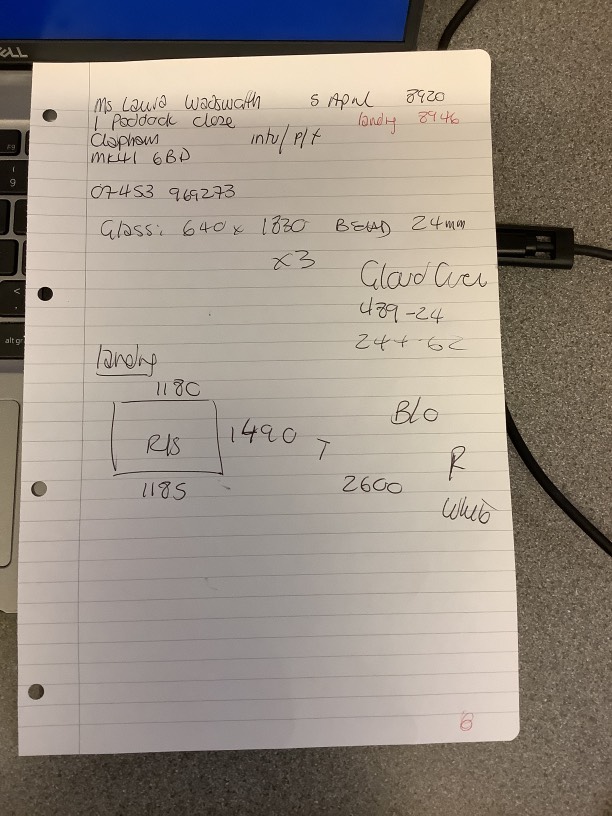 DELL
Ms Laura Wadswath 5 April 8920
1 Paddock close landng 8946
Clapham intu/p/t
MK41 6BD
07453 969273
Glass: 640 x 1830 BEAD 24mm
x3
489-24
24+-62
landng
1180
R/S 1490 T
1185
Blo
R
2600
White
6